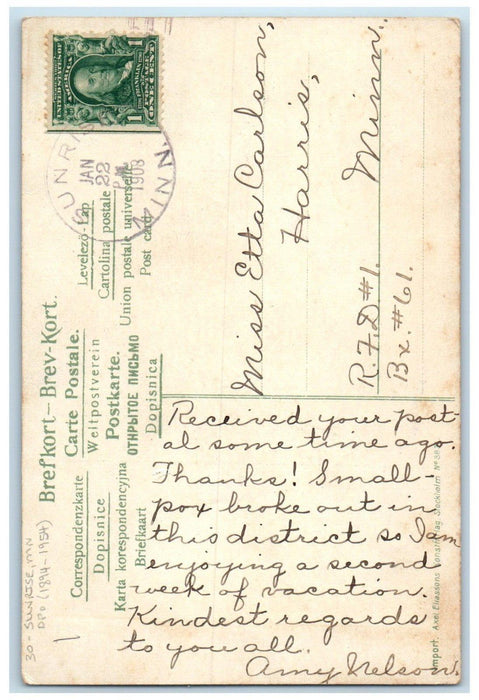 UNITED STATES OF AMERICA
1 1
FRANKLIN
ONE CENT
SUNRISE
JAN
22
P.M.
1908
MINN.
Brefkort – Brev-Kort.
Carte Postale.
Levelező-Lap
Weltpostverein
Cartolina postale
Postkarte.
Union postale universelle
ОТКРЫТОЕ ПИСЬМО
Post card
Dopisnica
Correspondenzkarte
Dopisnice
Karta korespondencyjna
Briefkaart
Miss Etta Carlson,
Harris,
Minn.
R.F.D #1.
Bx. #61.
Received your post-
al some time ago.
Thanks! Small-
pox broke out in
this district so I am
enjoying a second
week of vacation.
Kindest regards
to you all.
Amy Nelson.
Import. Axel Eliassons Konstförlag. Stockholm
30 - SUNRISE, MN
DPO (1894-1954)